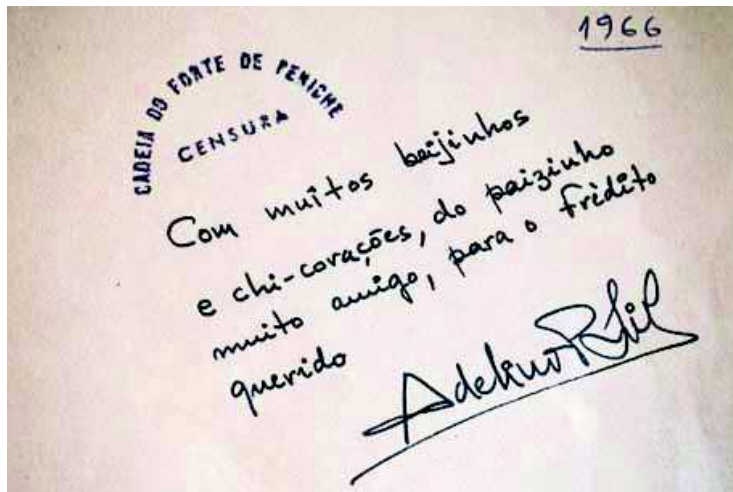 1966
CADEIA DO FORTE DE PENICHE
CENSURA
Com muitos beijinhos
e chi-corações, do paizinho
muito amigo, para o Frèdito
querido
Adelino